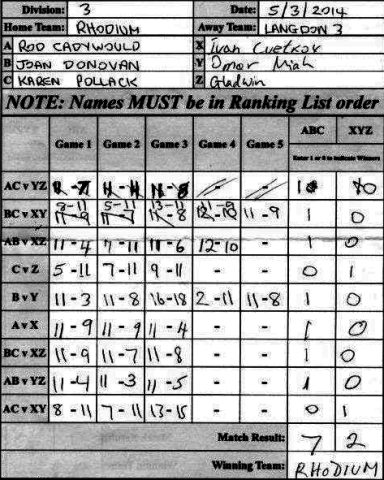 Division: 3 Date: 5/3/2014
Home Team: RHODIUM Away Team: LANGDON 3
A ROD CADYWOULD X Ivan Cvetkov
B JOAN DONOVAN Y Omar Miah
C KAREN POLLACK Z Gladwin
NOTE: Names MUST be in Ranking List order
Game 1 Game 2 Game 3 Game 4 Game 5 ABC XYZ
Enter 1 or 0 to indicate Winners
AC v YZ
BC v XY 11-9 1 0
AB v XZ 11-4 7-11 11-6 12-10 - 1 0
C v Z 5-11 7-11 9-11 - - 0 1
B v Y 11-3 11-8 16-18 2-11 11-8 1 0
A v X 11-9 11-9 11-4 - - 1 0
BC v XZ 11-9 11-7 11-8 - - 1 0
AB v YZ 11-4 11-3 11-5 - - 1 0
AC v XY 8-11 7-11 13-15 - - 0 1
Match Result: 7 2
Winning Team: RHODIUM